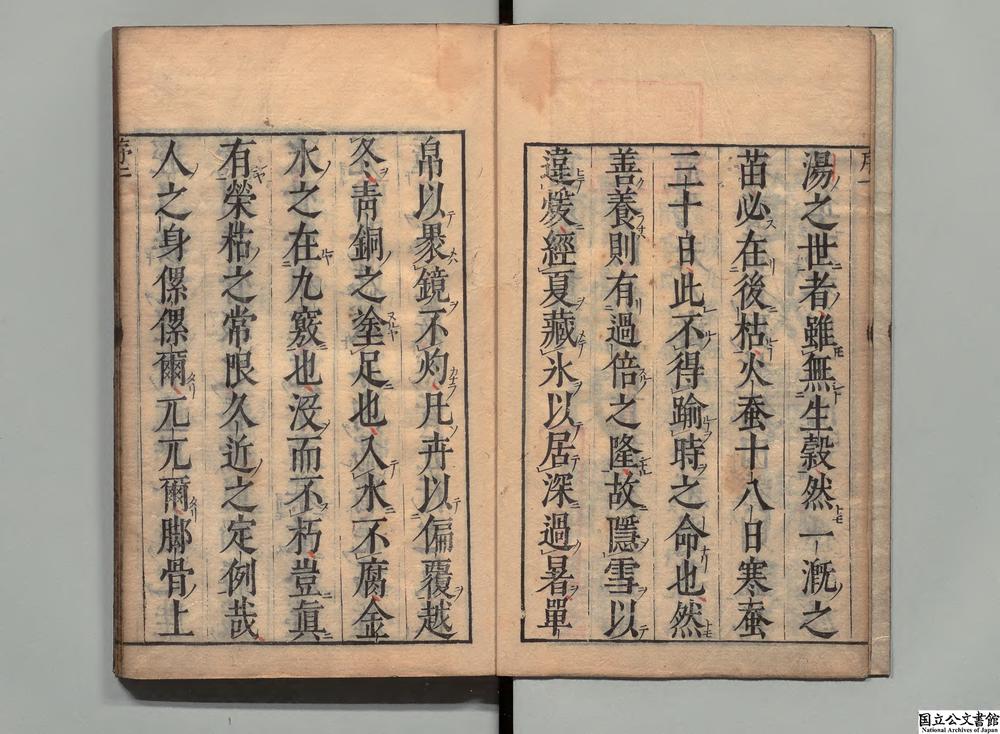 湯之世者雖無生穀然一漑之
苗必在後枯火蚕十八日寒蚕
三十日此不得踰時之命也然
善養則有過倍之隆故隱雪以
違煖經夏藏氷以居深過暑單
帛以褁鏡不灼凡卉以偏覆越
冬青銅之塗足也入水不腐金
水之在九竅也沒而不朽豈眞
有榮枯之常限久近之定例哉
人之身傫傫爾兀兀爾䐚骨上
国立公文書館
National Archives of Japan